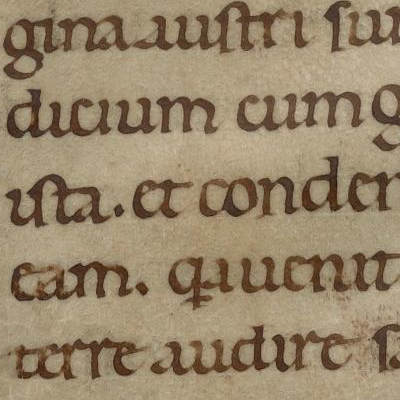 gina austri sur
dicium cum g
ista. et conder
eam. q̄a uenit
terre audire sa